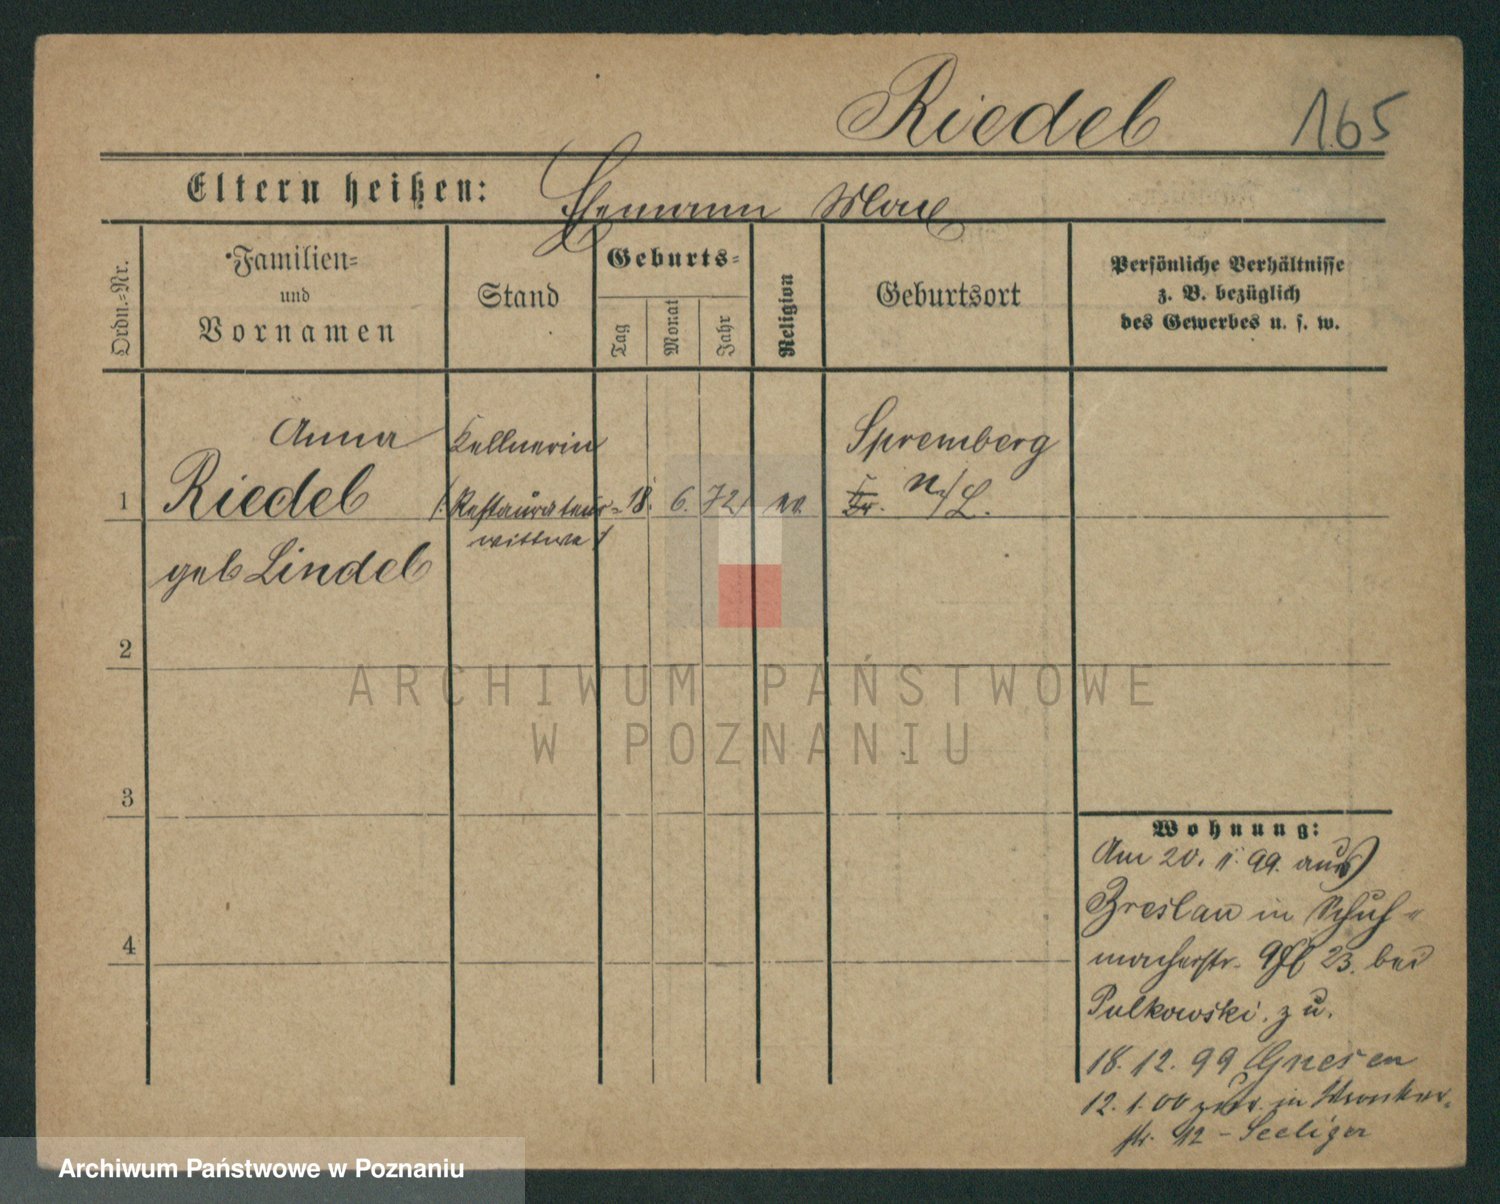 Riedel 165
Eltern heißen: Hermann Max
Ordn.-Nr.
Familien-
und
Vornamen
Stand
Geburts-
Tag
Monat
Jahr
Religion
Geburtsort
Persönliche Verhältnisse
z. B. bezüglich
des Gewerbes u. s. w.
Anna Kellnerin Spremberg
1 Riedel (Restaurateur- 18. 6. 72. ev. n/L.
wittwe)
geb Lindel
2
3
4
Wohnung:
Am 20. 11. 99. aus
Breslau in Schuh-
macherstr. 23. bei
Pulkowski. zu.
18. 12. 99 Gnesen
12. 1. 00 zur. in Wronker-
str. 12 - Seeliger
ARCHIWUM PAŃSTWOWE
W POZNANIU
Archiwum Państwowe w Poznaniu